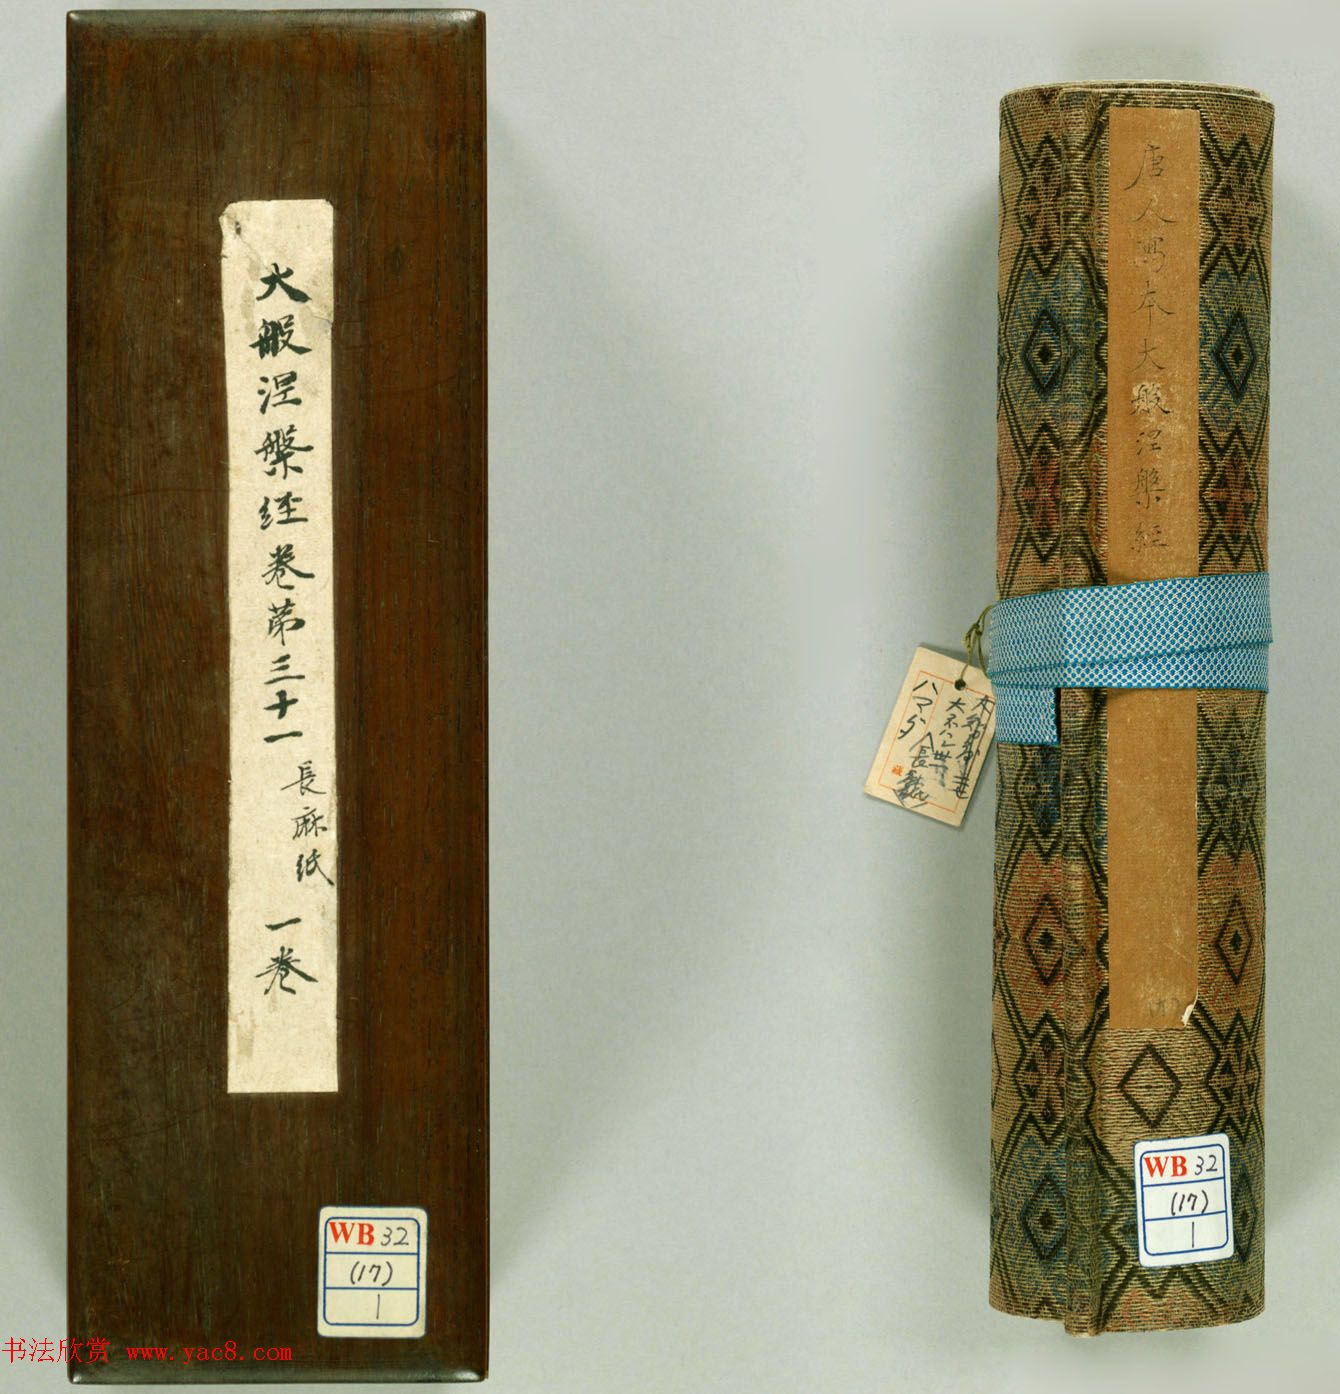 大般涅槃経巻第三十一 長麻紙 一巻
WB 32
(17)
1
唐人寫本大般涅槃經
ハマダ
藏
WB 32
(17)
1
书法欣赏 www.yac8.com